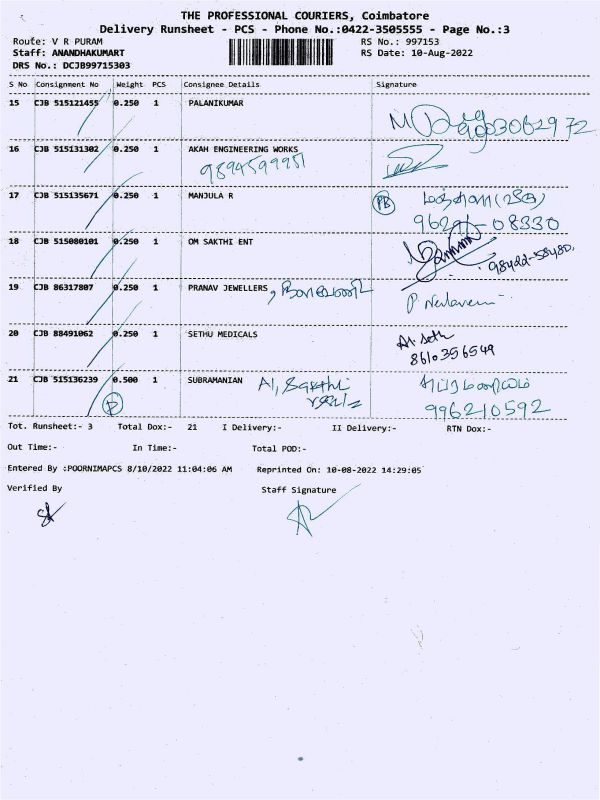 THE PROFESSIONAL COURIERS, Coimbatore
Delivery Runsheet - PCS - Phone No.:0422-3505555 - Page No.:3
Route: V R PURAM RS No.: 997153
Staff: ANANDHAKUMART RS Date: 10-Aug-2022
DRS No.: DCJB99715303
S No Consignment No Weight PCS Consignee Details Signature
15 CJB 515121455 0.250 1 PALANIKUMAR
16 CJB 515131302 0.250 1 AKAH ENGINEERING WORKS
17 CJB 515135671 0.250 1 MANJULA R PB
96291-08330
18 CJB 515080101 0.250 1 OM SAKTHI ENT
98422-58480
19 CJB 86317807 0.250 1 PRANAV JEWELLERS
20 CJB 88491062 0.250 1 SETHU MEDICALS
8610356549
21 CJB 515136239 0.500 1 SUBRAMANIAN
P 996210592
Tot. Runsheet:- 3 Total Dox:- 21 I Delivery:- II Delivery:- RTN Dox:-
Out Time:- In Time:- Total POD:-
Entered By :POORNIMAPCS 8/10/2022 11:04:06 AM Reprinted On: 10-08-2022 14:29:05
Verified By Staff Signature